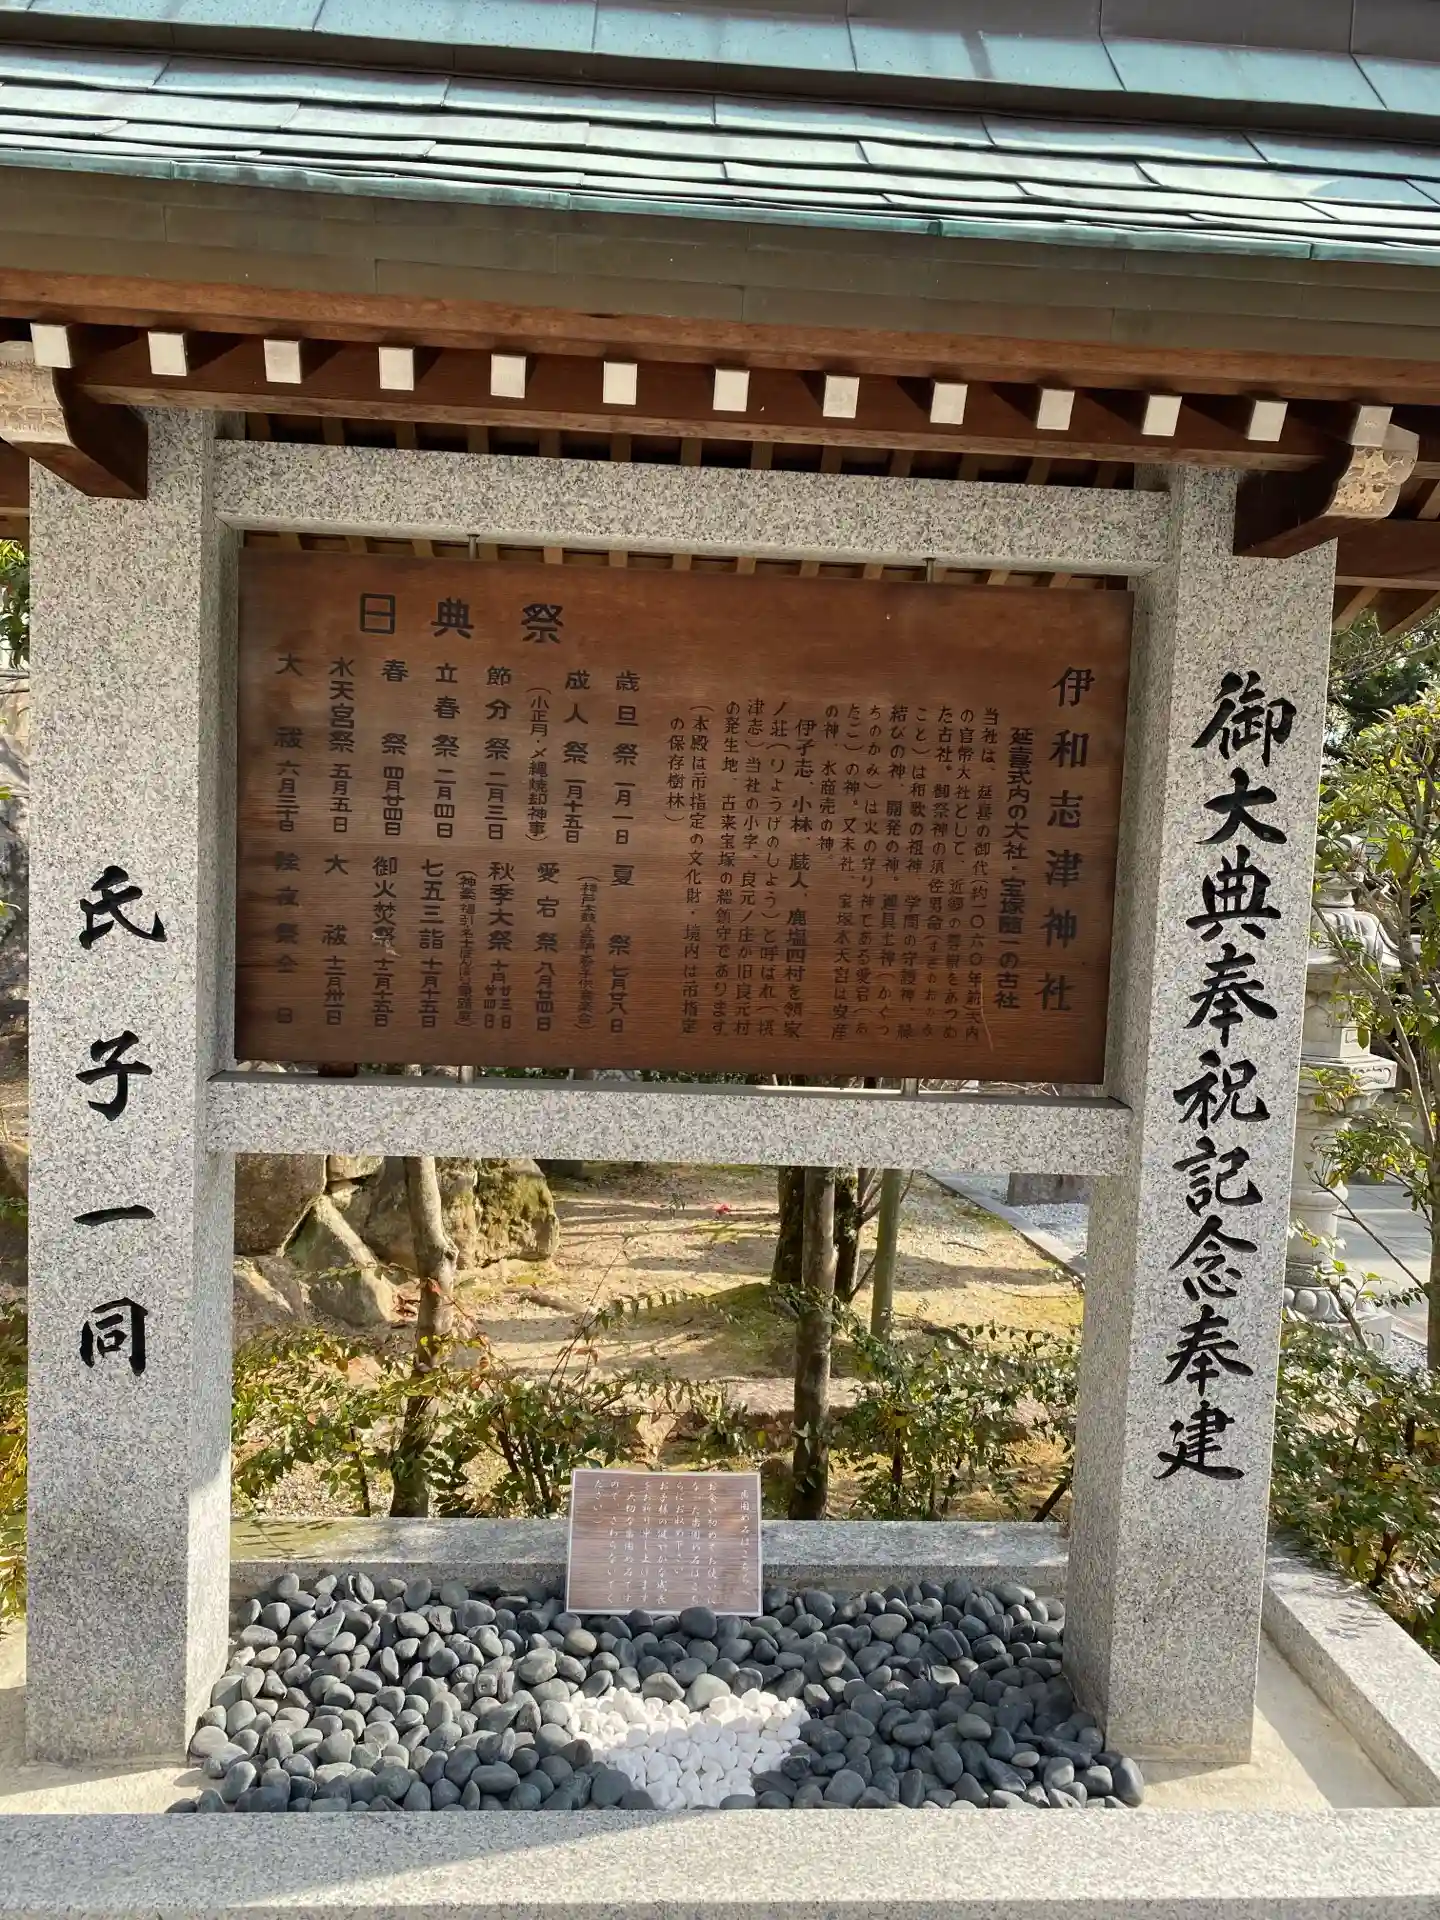 御大典奉祝記念奉建
伊和志津神社
延喜式内の大社・宝塚随一の古社
当社は、延喜の御代(約一〇六〇年前)式内
の官幣大社として、近郷の尊崇をあつめ
た古社。御祭神の須佐男命(すさのおのみ
こと)は和歌の祖神、学問の守護神、縁
結びの神、開発の神。迦具土神(かぐつ
ちのかみ)は火の守り神である愛宕(あ
たご)の神。又末社、宝塚水天宮は安産
の神、水商売の神。
伊孑志、小林、蔵人、鹿塩四村を領家
ノ荘(りょうけのしょう)と呼ばれ(摂
津志)当社の小字、良元ノ庄が旧良元村
の発生地、古来宝塚の総鎮守であります
(本殿は市指定の文化財・境内は市指定
の保存樹林)
祭典日
歳旦祭 一月一日
成人祭 一月十五日
(小正月・〆縄焼却神事)
節分祭 二月三日
立春祭 二月四日
春祭 四月廿四日
水天宮祭 五月五日
大祓 六月三十日
夏祭 七月廿八日
愛宕祭 八月廿四日
秋季大祭 十月廿三日 廿四日
七五三詣 十一月十五日
御火焚祭 十二月十五日
大祓 十二月卅一日
除夜祭 仝日
氏子一同
歯固め石はこちらへ
お食い初めでお使いに
なった歯固め石はこち
らにお収め下さい
お子様の健やかな成長
をお祈り申し上げます
(大切な歯固め石です
ので、さわらないでく
ださい)